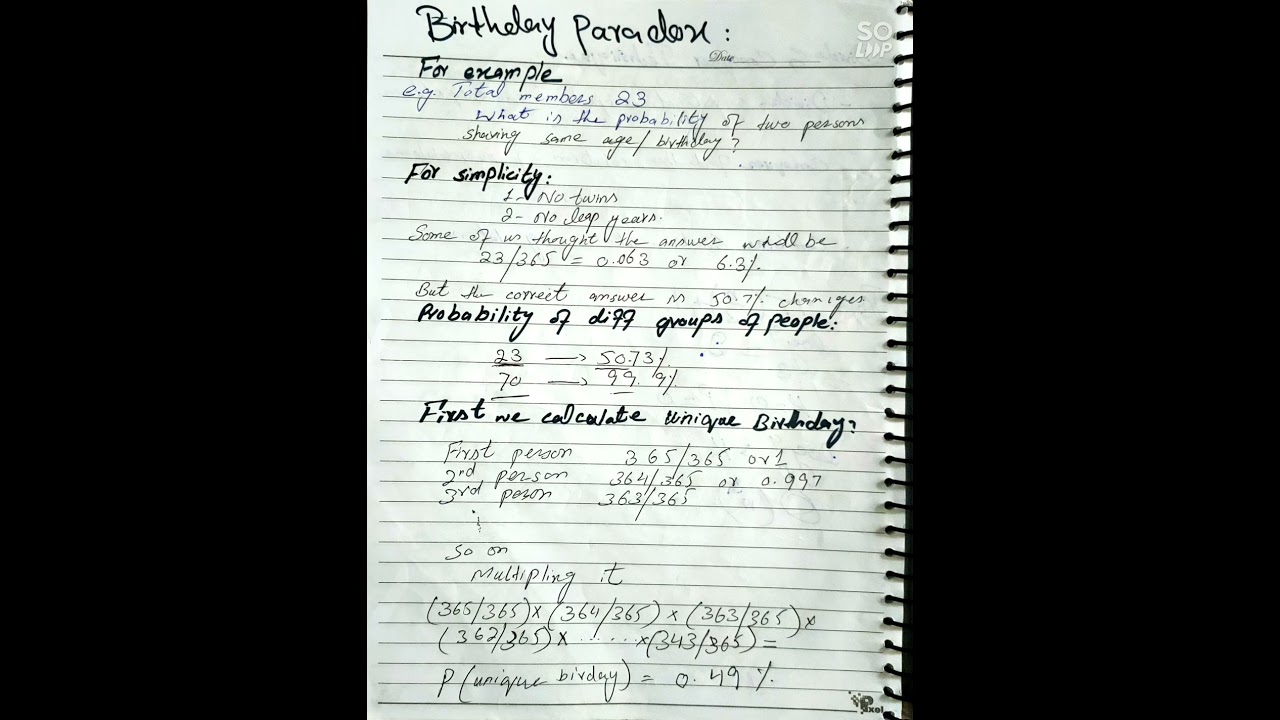 Birthday Paradox:
SO
LOOP
Date
For example
e.g. Total members 23
What is the probability of two persons
sharing same age/birthday?
For simplicity:
1- No twins
2- No leap years.
Some of us thought the answer would be
23/365 = 0.063 or 6.3%
But the correct answer is 50.7% changes
Probability of diff groups of people:
23 → 50.73%
70 → 99.9%
First we calculate Unique Birthday:
First person 365/365 or 1
2rd person 364/365 or 0.997
3rd peson 363/365
So on
Multipling it
(365/365) × (364/365) × (363/365) ×
(362/365) × ...... × (343/365) =
P(unique birday) = 0.49 %
Pixel